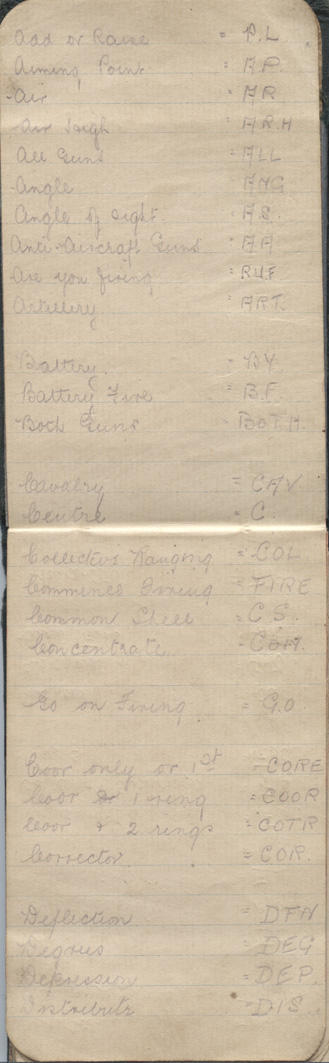 Add or Raise = P.L
Aiming Point = A.P.
Air = AR
Air High = AR.H
All Guns = ALL
Angle = ANG
Angle of sight. = A.S.
Anti-Aircraft Guns = AA
Are you firing = RUF
Artillery = ART.
Battery. = BY
Battery Fire = B.F.
Both Guns = BOTH.
Cavalry = CAV
Centre = C.
Collective Ranging = COL
Commence Firing = FIRE
Common Shell = C S.
Concentrate =
Go on Firing = G.O
Coor only or 1st = CORE
Coor & 1 ring = COOR
Coor & 2 rings = COTR
Corrector = COR.
Deflection = DFN
Degrees = DEG
Depression = DEP.
Distribute = DIS.